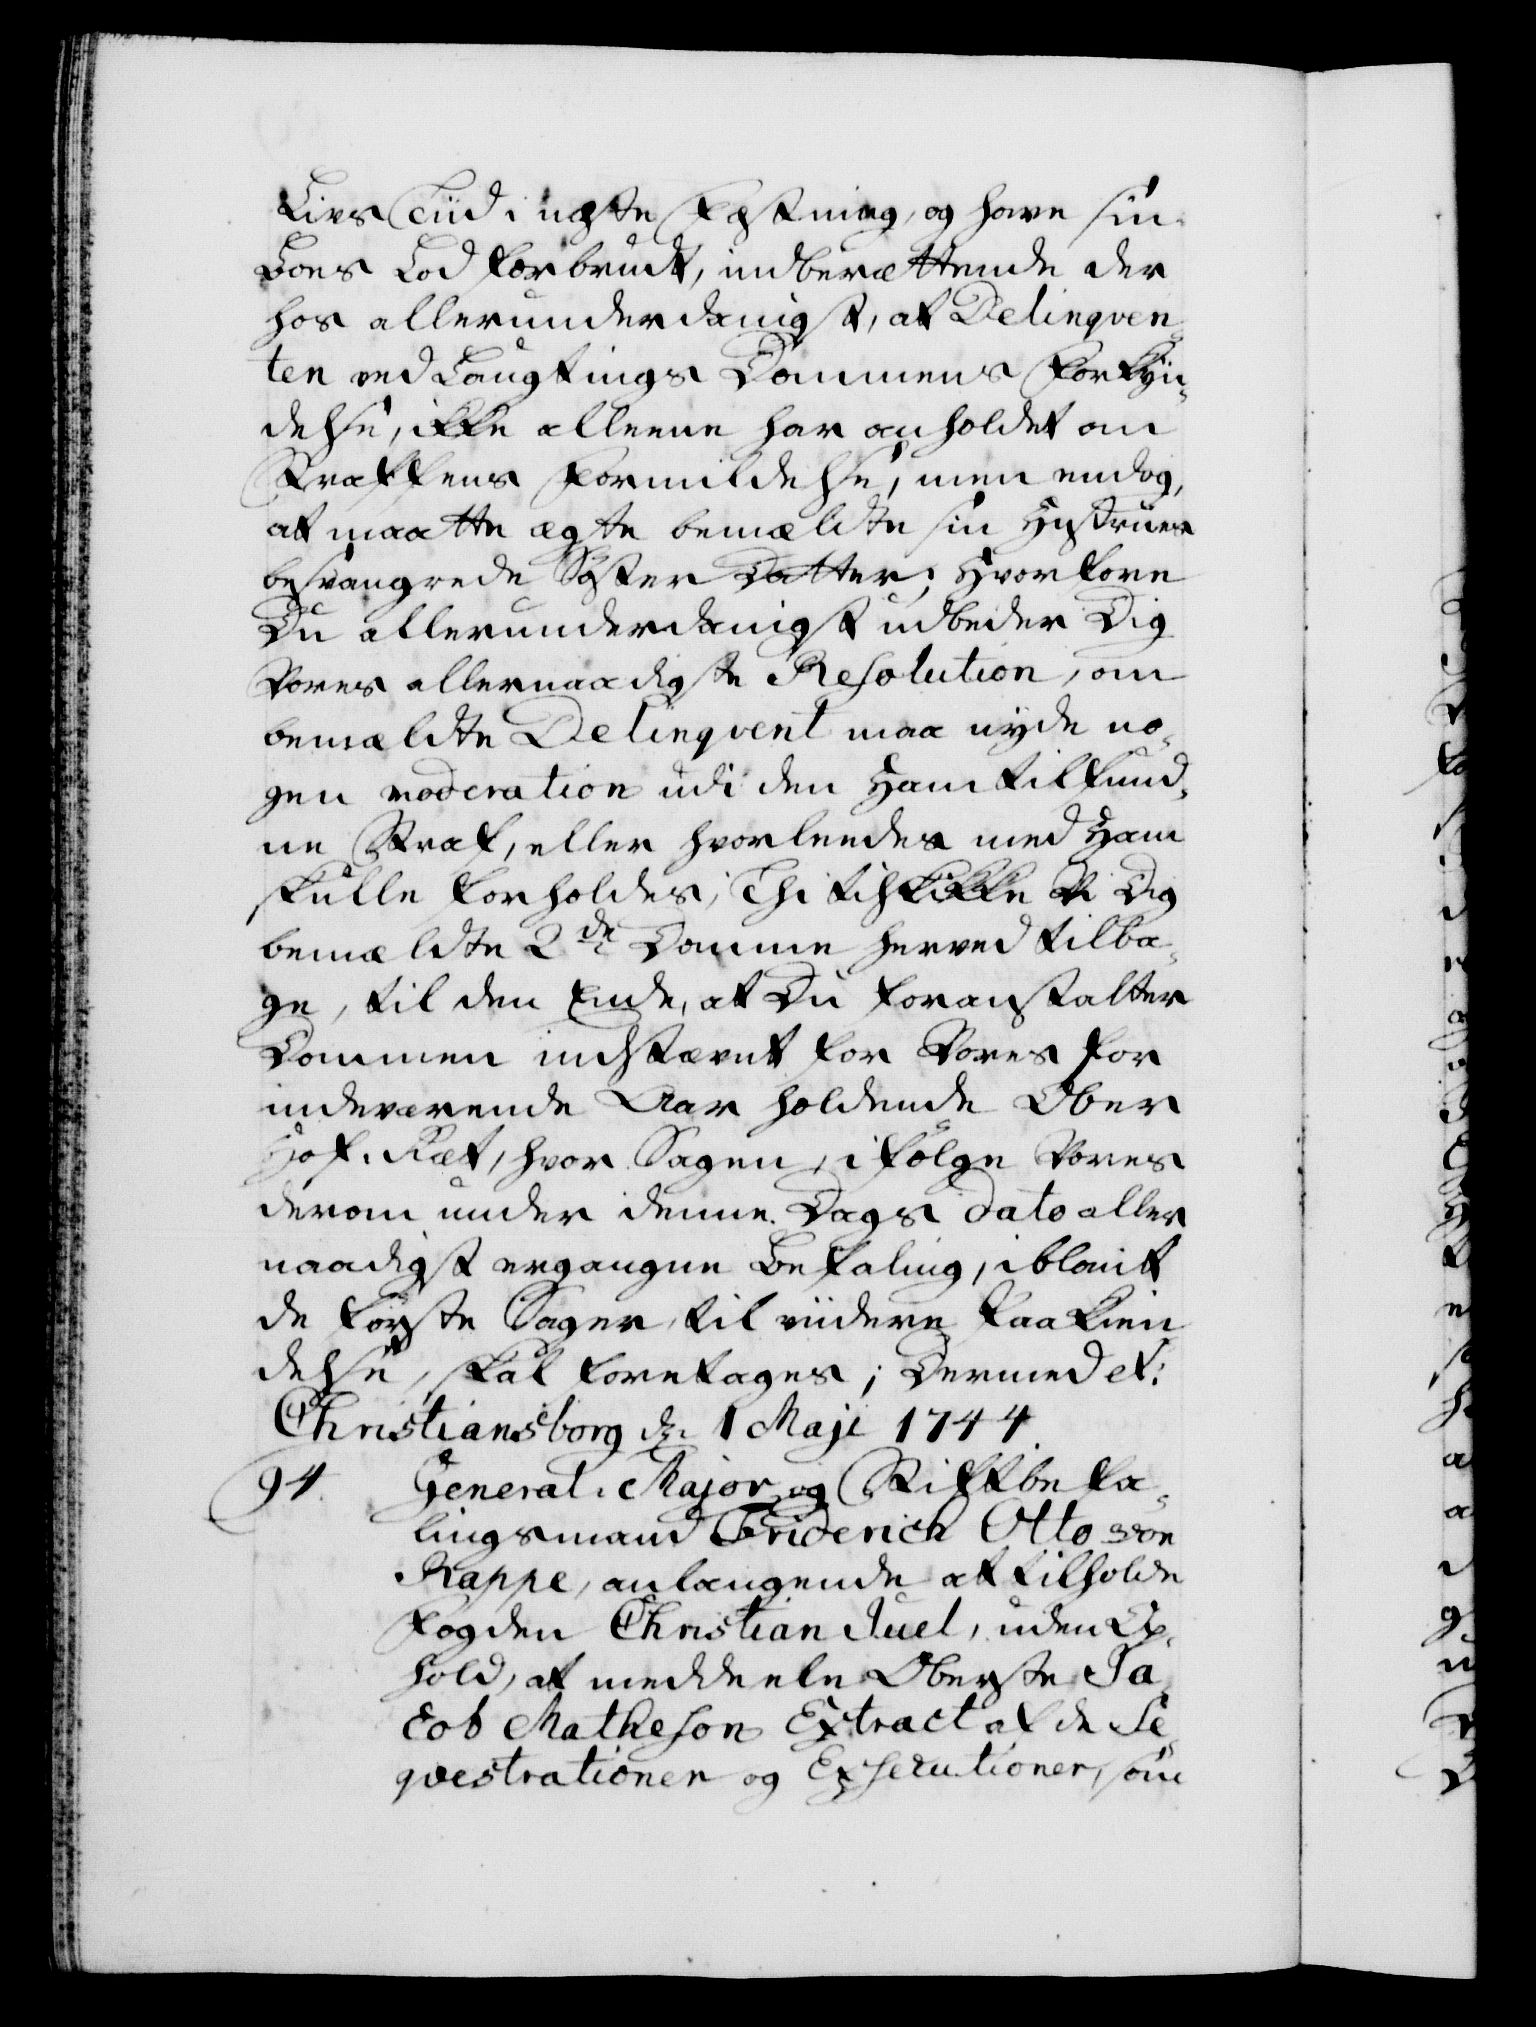 Livs Tiid i neste Fæstning, og have sin
Boes Lod forbrudt, indberættende der
hos allerunderdanigst, at Delinqven¬
ten ved Laugtings Dommens Forkyn¬
delse, ikke alleene har anholdet om
Straffens Formildelse, men endog,
at maatte ægte bemældte sin Hustrues
besvangrede Søster Datter; Hvorfore
Du allerunderdanigst udbeder Dig
Vores allernaadigste Resolution, om
bemældte Delinqvent maa nyde no¬
gen moderation udi den Ham tilfund¬
ne Straf, eller hvorleedes med Ham
skulle forholdes; Thi tilskikke Vi Dig
bemældte 2de Domme herved tilba¬
ge, til den Ende, at Du foranstalter
Dommen indstævnt for Vores for
indeværende Aar holdende Ober
Hof-Ræt, hvor Sagen, i følge Vores
derom under denne Dags Dato aller
naadigst ergangne Befaling, iblant
de første Sager til viidere Paakien
delse, skal foretages; Dermed et:
Christiansborg d: 1 Maji 1744
94. General-Major og Stiftbefa¬
lingsmand Friderich Otto von
Rappe, anlangende at tilholde
Fogden Christian Juel, uden Op¬
hold, at meddeele Oberste Ja¬
cob Matheson Extract af de Se¬
qvestrationer og Exsecutioner, som